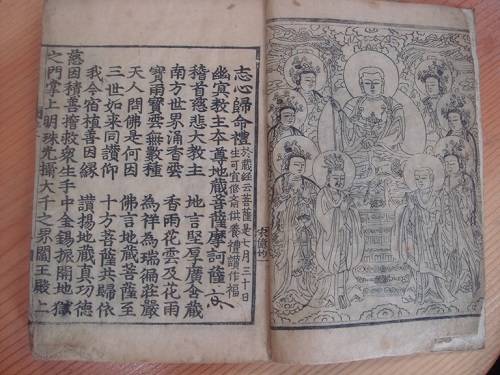 志心歸命禮
於藏經云菩薩是七月三十日
生可宜修齋供養禮讚作福
幽冥教主本尊地藏菩薩摩訶薩
稽首慈悲大教主 地言堅厚廣含藏
南方世界涌香雲 香雨花雲及花雨
寶雨寶雲無數種 為祥為瑞徧莊嚴
天人問佛是何因 佛言地藏菩薩至
三世如來同讚仰 十方菩薩共歸依
我今宿植善因緣 讚揚地藏真功德
慈因積善誓救衆生手中金錫振開地獄
之門掌上明珠光攝大千之界閻王殿上